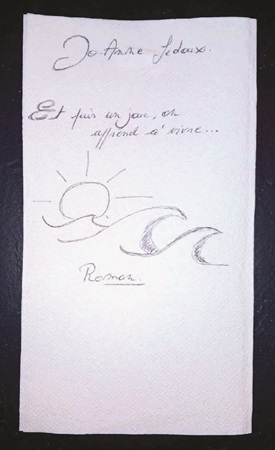 Jo-Anne Ledoux.
Et puis un jour, on
apprend à vivre...
Roman.